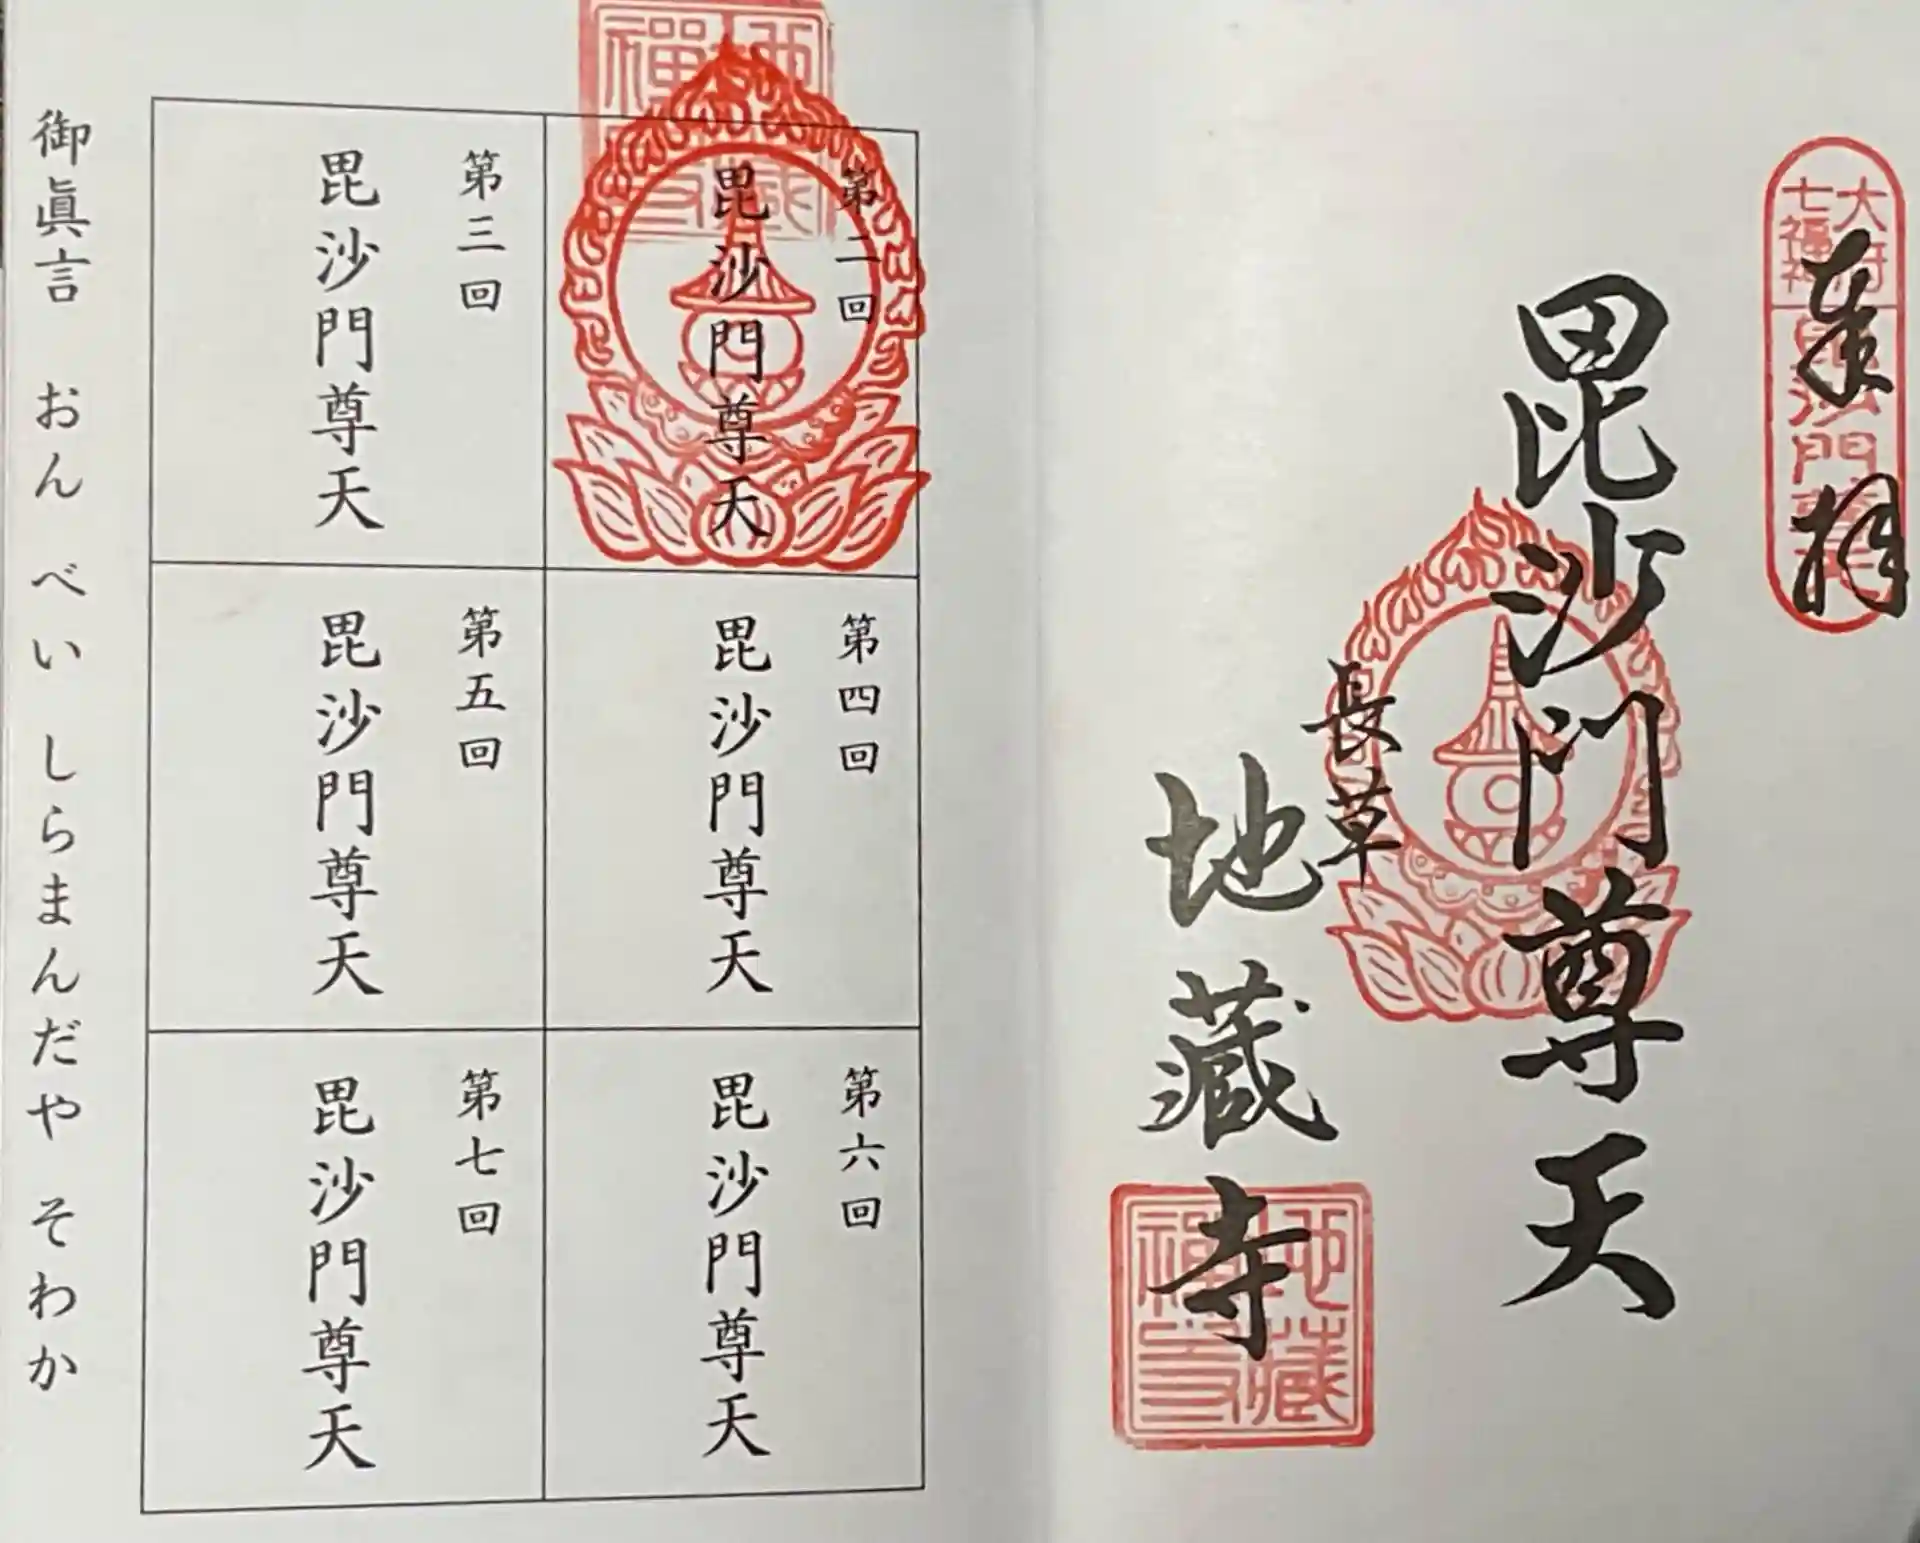 大府七福神
毘沙門尊天
奉拝
毘沙門尊天
長草
地藏寺
地藏禪寺
地藏禪寺
第二回
毘沙門尊天
第三回
毘沙門尊天
第四回
毘沙門尊天
第五回
毘沙門尊天
第六回
毘沙門尊天
第七回
毘沙門尊天
御眞言 おん べい しらまんだや そわか